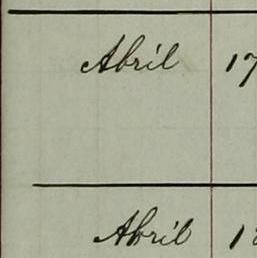 Abril 17
Abril